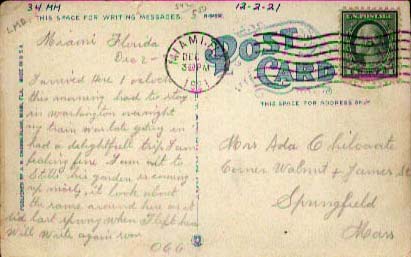 34 MM
12-2-21
THIS SPACE FOR WRITING MESSAGES.
POST CARD
THIS SPACE FOR ADDRESS ONLY
MIAMI
DEC
3 PM
U.S. POSTAGE
Miami Florida
Dec 2-
I arrived Here 1 o'clock
this morning had to stay
in Washington overnight
my train was late getting in
had a delightfull trip. I am
feeling fine. I am out to
Stills his garden is coming
up nicely, it look about
the same around here as it
did last spring when I left him
Will write again soon
OGG
Mrs Ada Chilcoarte
Corner Walnut & James St
Springfield
Mass